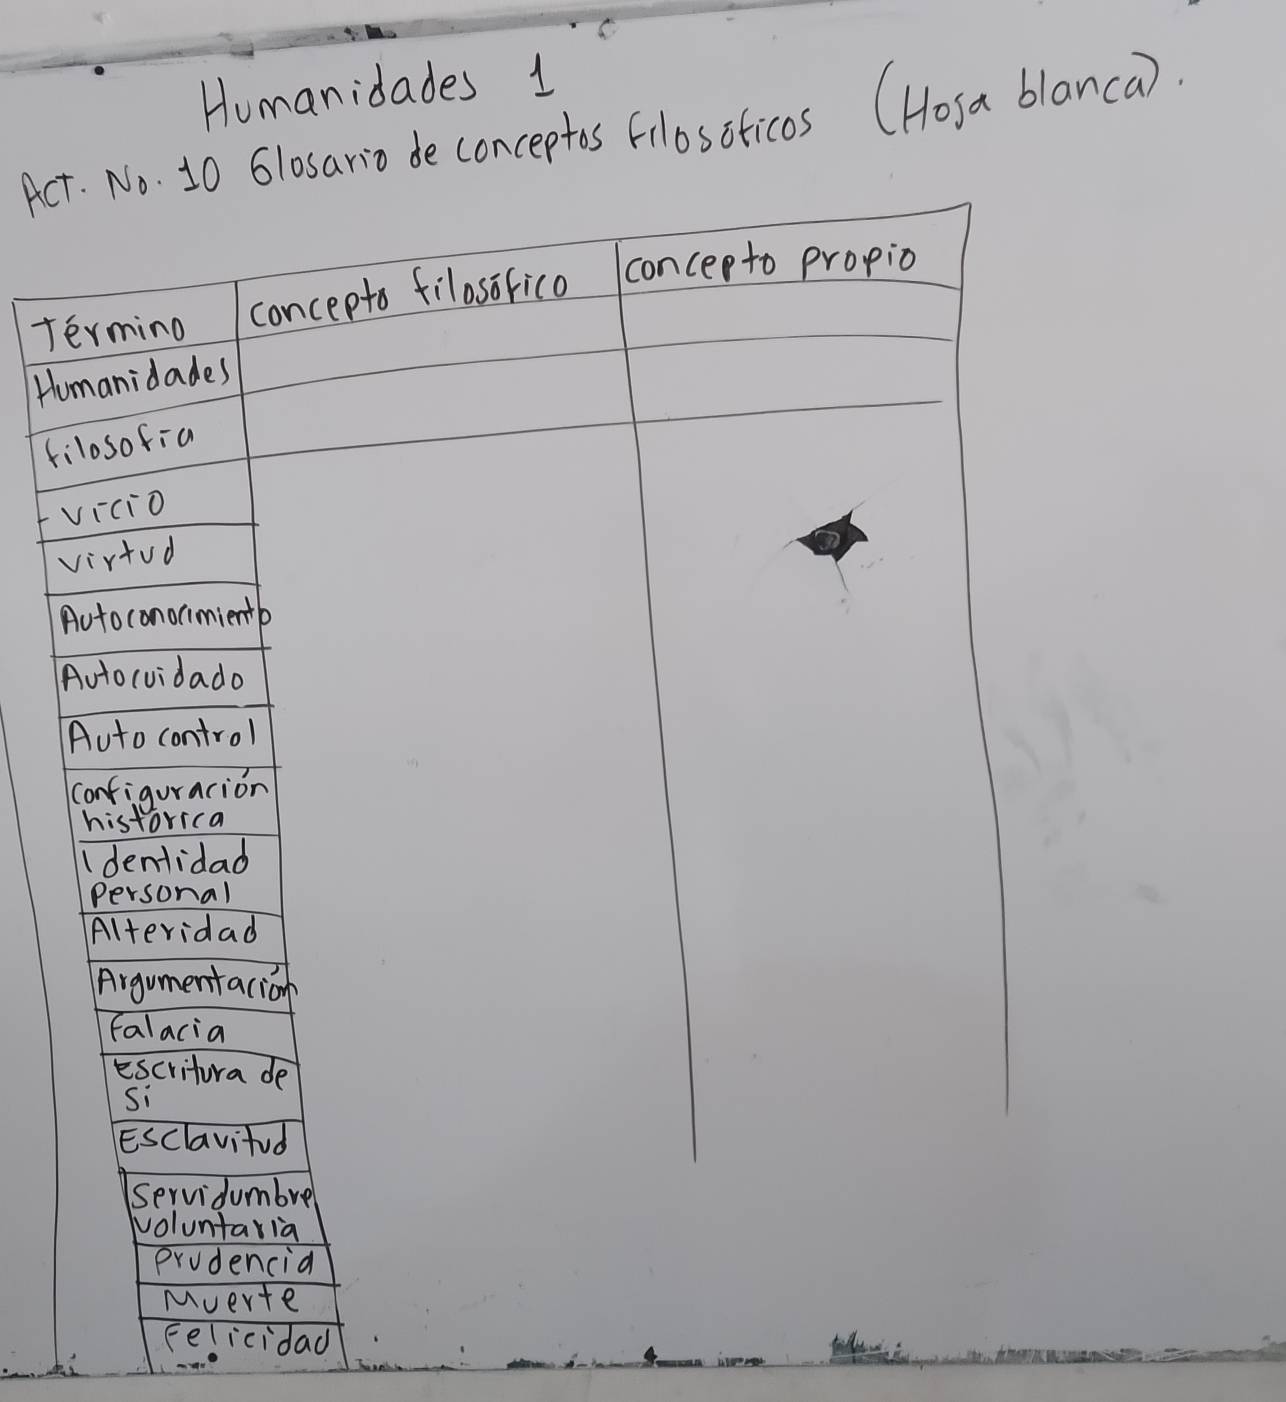 Humanidades 1
Act. No. 10 Glosario de conceptos filosóficos (Hoja blanca).
Término concepto filosófico concepto propio
Humanidades
filosofía
vicio
virtud
Autoconocimiento
Autocuidado
Auto control
configuración
histórica
Identidad
personal
Alteridad
Argumentación
Falacia
Escritura de
si
Esclavitud
Servidumbre
voluntaria
Prudencia
Muerte
Felicidad